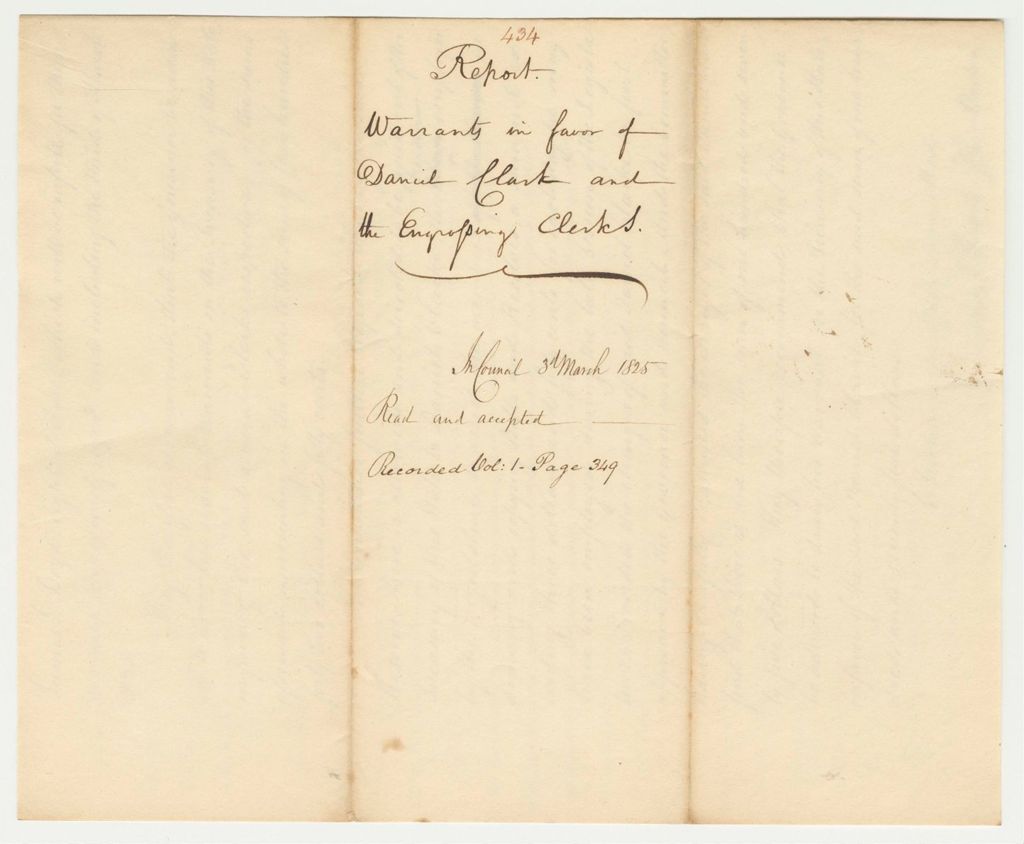 434
Report.
Warrants in favor of
Daniel Clark and
the Engrossing Clerks.
In Council 3d March 1825
Read and accepted
Recorded Vol: 1 - Page 349